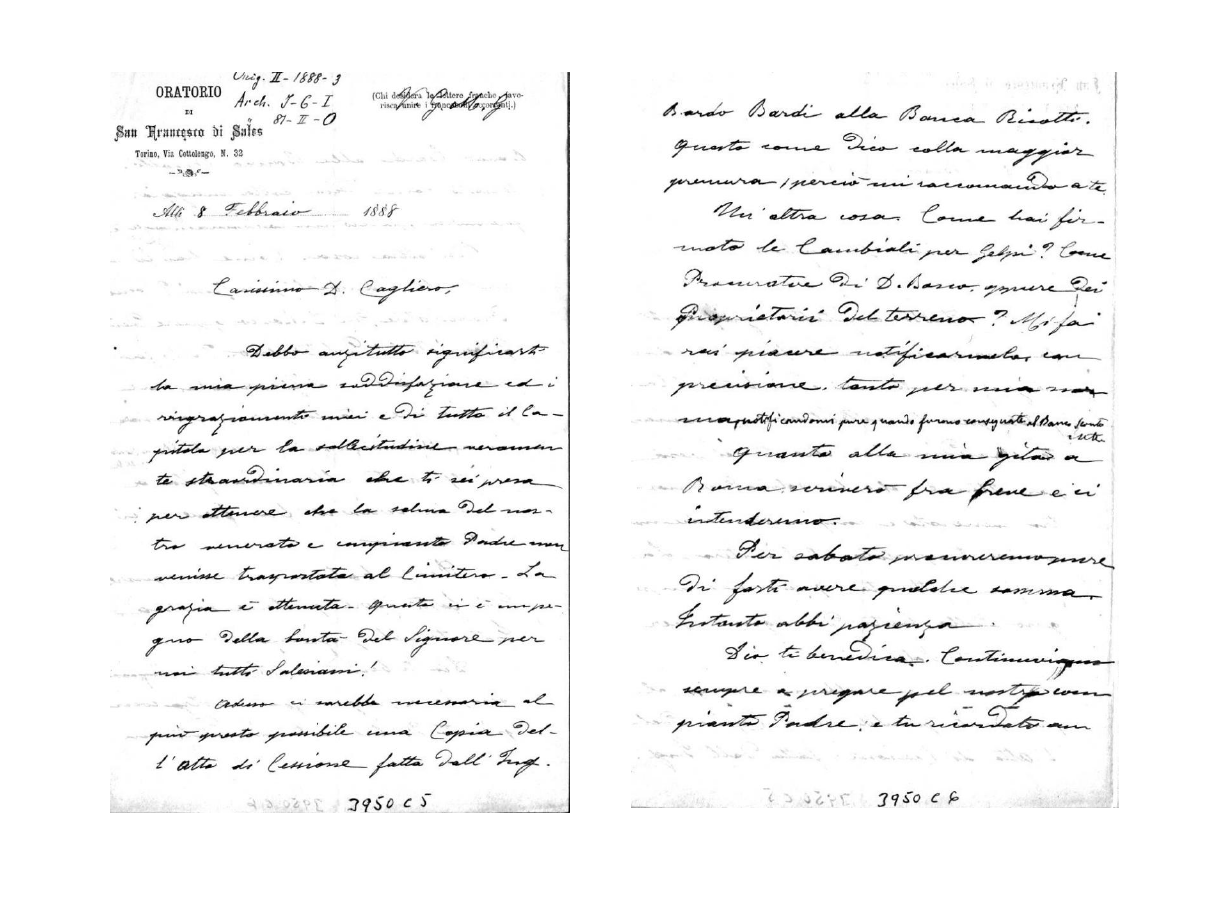 Orig. II - 1888 - 3
Arch. J - G - I
87 - II - O
ORATORIO
DI
San Francesco di Sales
Torino, Via Cottolengo, N. 32
(Chi desidera le lettere franche favo-
risca unire i francobolli corrispondenti.)
Alli 8 Febbraio 1888
Carissimo D. Cagliero,
Debbo anzitutto significarti
la mia piena soddisfazione ed i
ringraziamenti miei e di tutto il Ca-
pitolo per la sollecitudine veramen
te straordinaria che ti sei presa
per ottenere che la salma del nos-
tro venerato e compianto Padre non
venisse trasportata al Cimitero. La
grazia è ottenuta. Questo ci è un pe-
gno della bontà del Signore per
noi tutti Salesiani!
Adesso ci sarebbe necessaria al
più presto possibile una Copia del-
l'Atto di Cessione fatta dall' Ing.
3950 C 5
Bardo Bardi alla Banca Ricotti.
Questo come dico colla maggior
premura, perciò mi raccomando a te
Un' altra cosa. Come hai fir-
mato le Cambiali per Gelpi? Come
Procuratore di D. Bosco, oppure dei
Proprietarii del terreno? Mi fa
rai piacere notificarmelo, con
precisione, tanto per mia nor
ma, notificandomi pure quando furono consegnate al Banco Sconto
e Sete
Quanto alla mia gita a
Roma scriverò fra breve e ci
intenderemo.
Per sabato procureremo pure
di farti avere qualche somma.
Intanto abbi pazienza.
Dio ti benedica. Continuiamo
sempre a pregare pel nostro com
pianto Padre; e tu ricordati an
3950 C 6